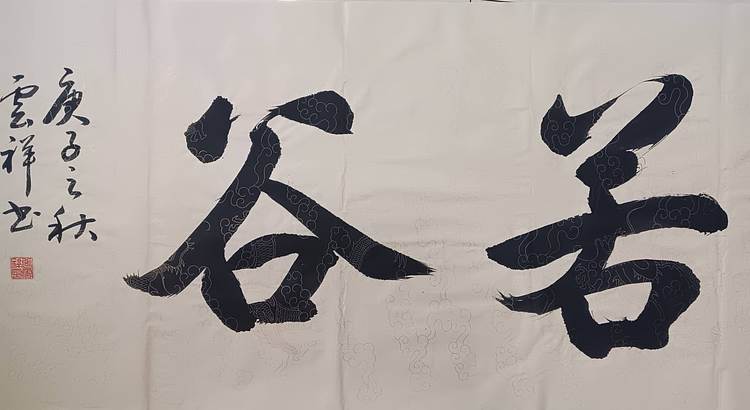 若谷
庚子之秋
雲祥书